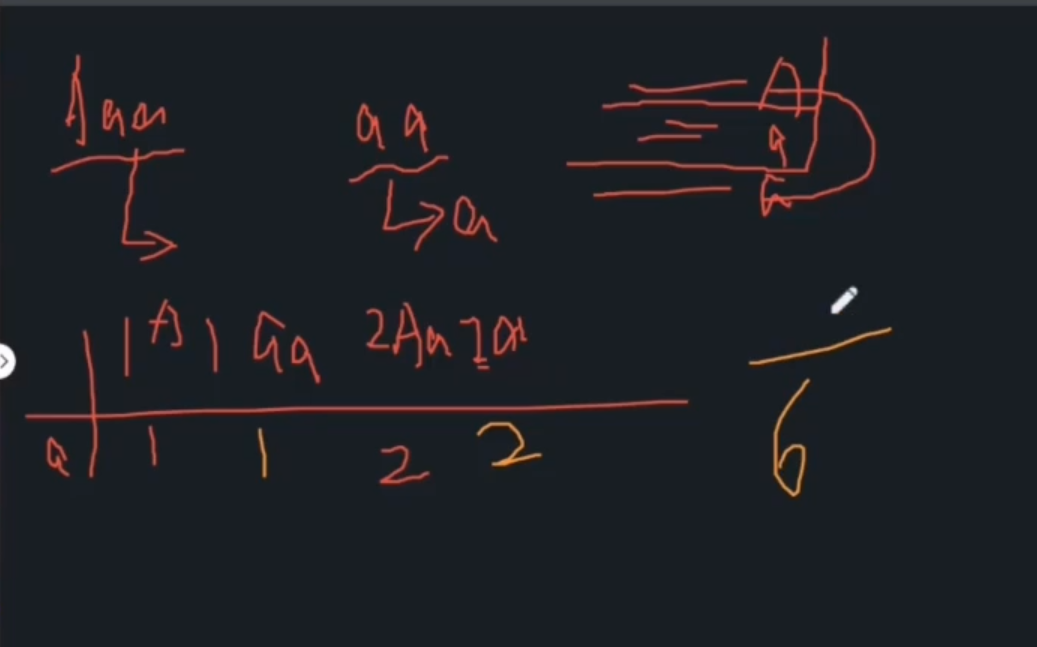 Aaa aa A
a
a
a
1A 1aa 2Aa 2a
a 1 1 2 2
6